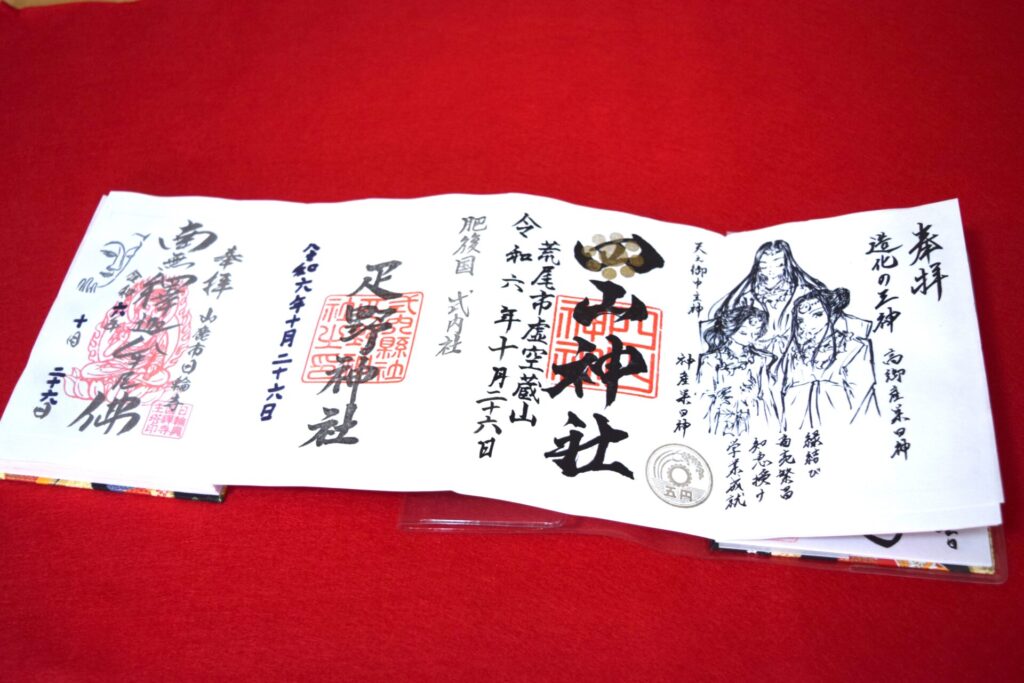 奉拝
造化の三神
高御産巣日神
天之御中主神
神産巣日神
縁結び
商売繁昌
知恵授け
学業成就
五円
四山神社
荒尾市虚空蔵山
令和六年十月二十六日
肥後国 式内社
疋野神社
令和六年十月二十六日
奉拝 山鹿市日輪寺
南無釋迦牟尼佛
令和六年
十月
二十六日